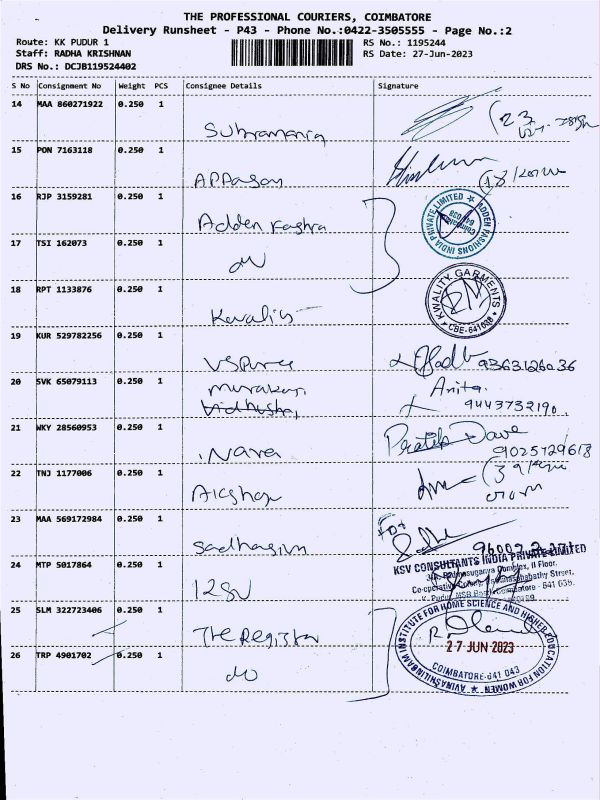 THE PROFESSIONAL COURIERS, COIMBATORE
Delivery Runsheet - P43 - Phone No.:0422-3505555 - Page No.:2
Route: KK PUDUR 1
RS No.: 1195244
Staff: RADHA KRISHNAN
RS Date: 27-Jun-2023
DRS No.: DCJB119524402
S No Consignment No Weight PCS Consignee Details Signature
14 MAA 860271922 0.250 1
Subramania
15 PON 7163118 0.250 1
Appason
16 RJP 3159281 0.250 1
Adden Fashra
ADDEN FASHIONS INDIA PRIVATE LIMITED
Coimbatore
641 038
17 TSI 162073 0.250 1
do
18 RPT 1133876 0.250 1
Kwality
KWALITY GARMENTS
CBE-641038
19 KUR 529782256 0.250 1
VSPuree
9363126036
20 SVK 65079113 0.250 1
murukan
Anita.
9443732190.
21 WKY 28560953 0.250 1
Nava
Pratik Dave
9025729618
22 TNJ 1177006 0.250 1
Akshay
23 MAA 569172984 0.250 1
Sadhasivm
For
24 MTP 5017864 0.250 1
KSV CONSULTANTS INDIA PRIVATE LIMITED
II Floor,
Coimbatore - 641 038.
25 SLM 322723406 0.250 1
The Register
26 TRP 4901702 0.250 1
do
AVINASHILINGAM INSTITUTE FOR HOME SCIENCE AND HIGHER EDUCATION FOR WOMEN
27 JUN 2023
COIMBATORE-641 043